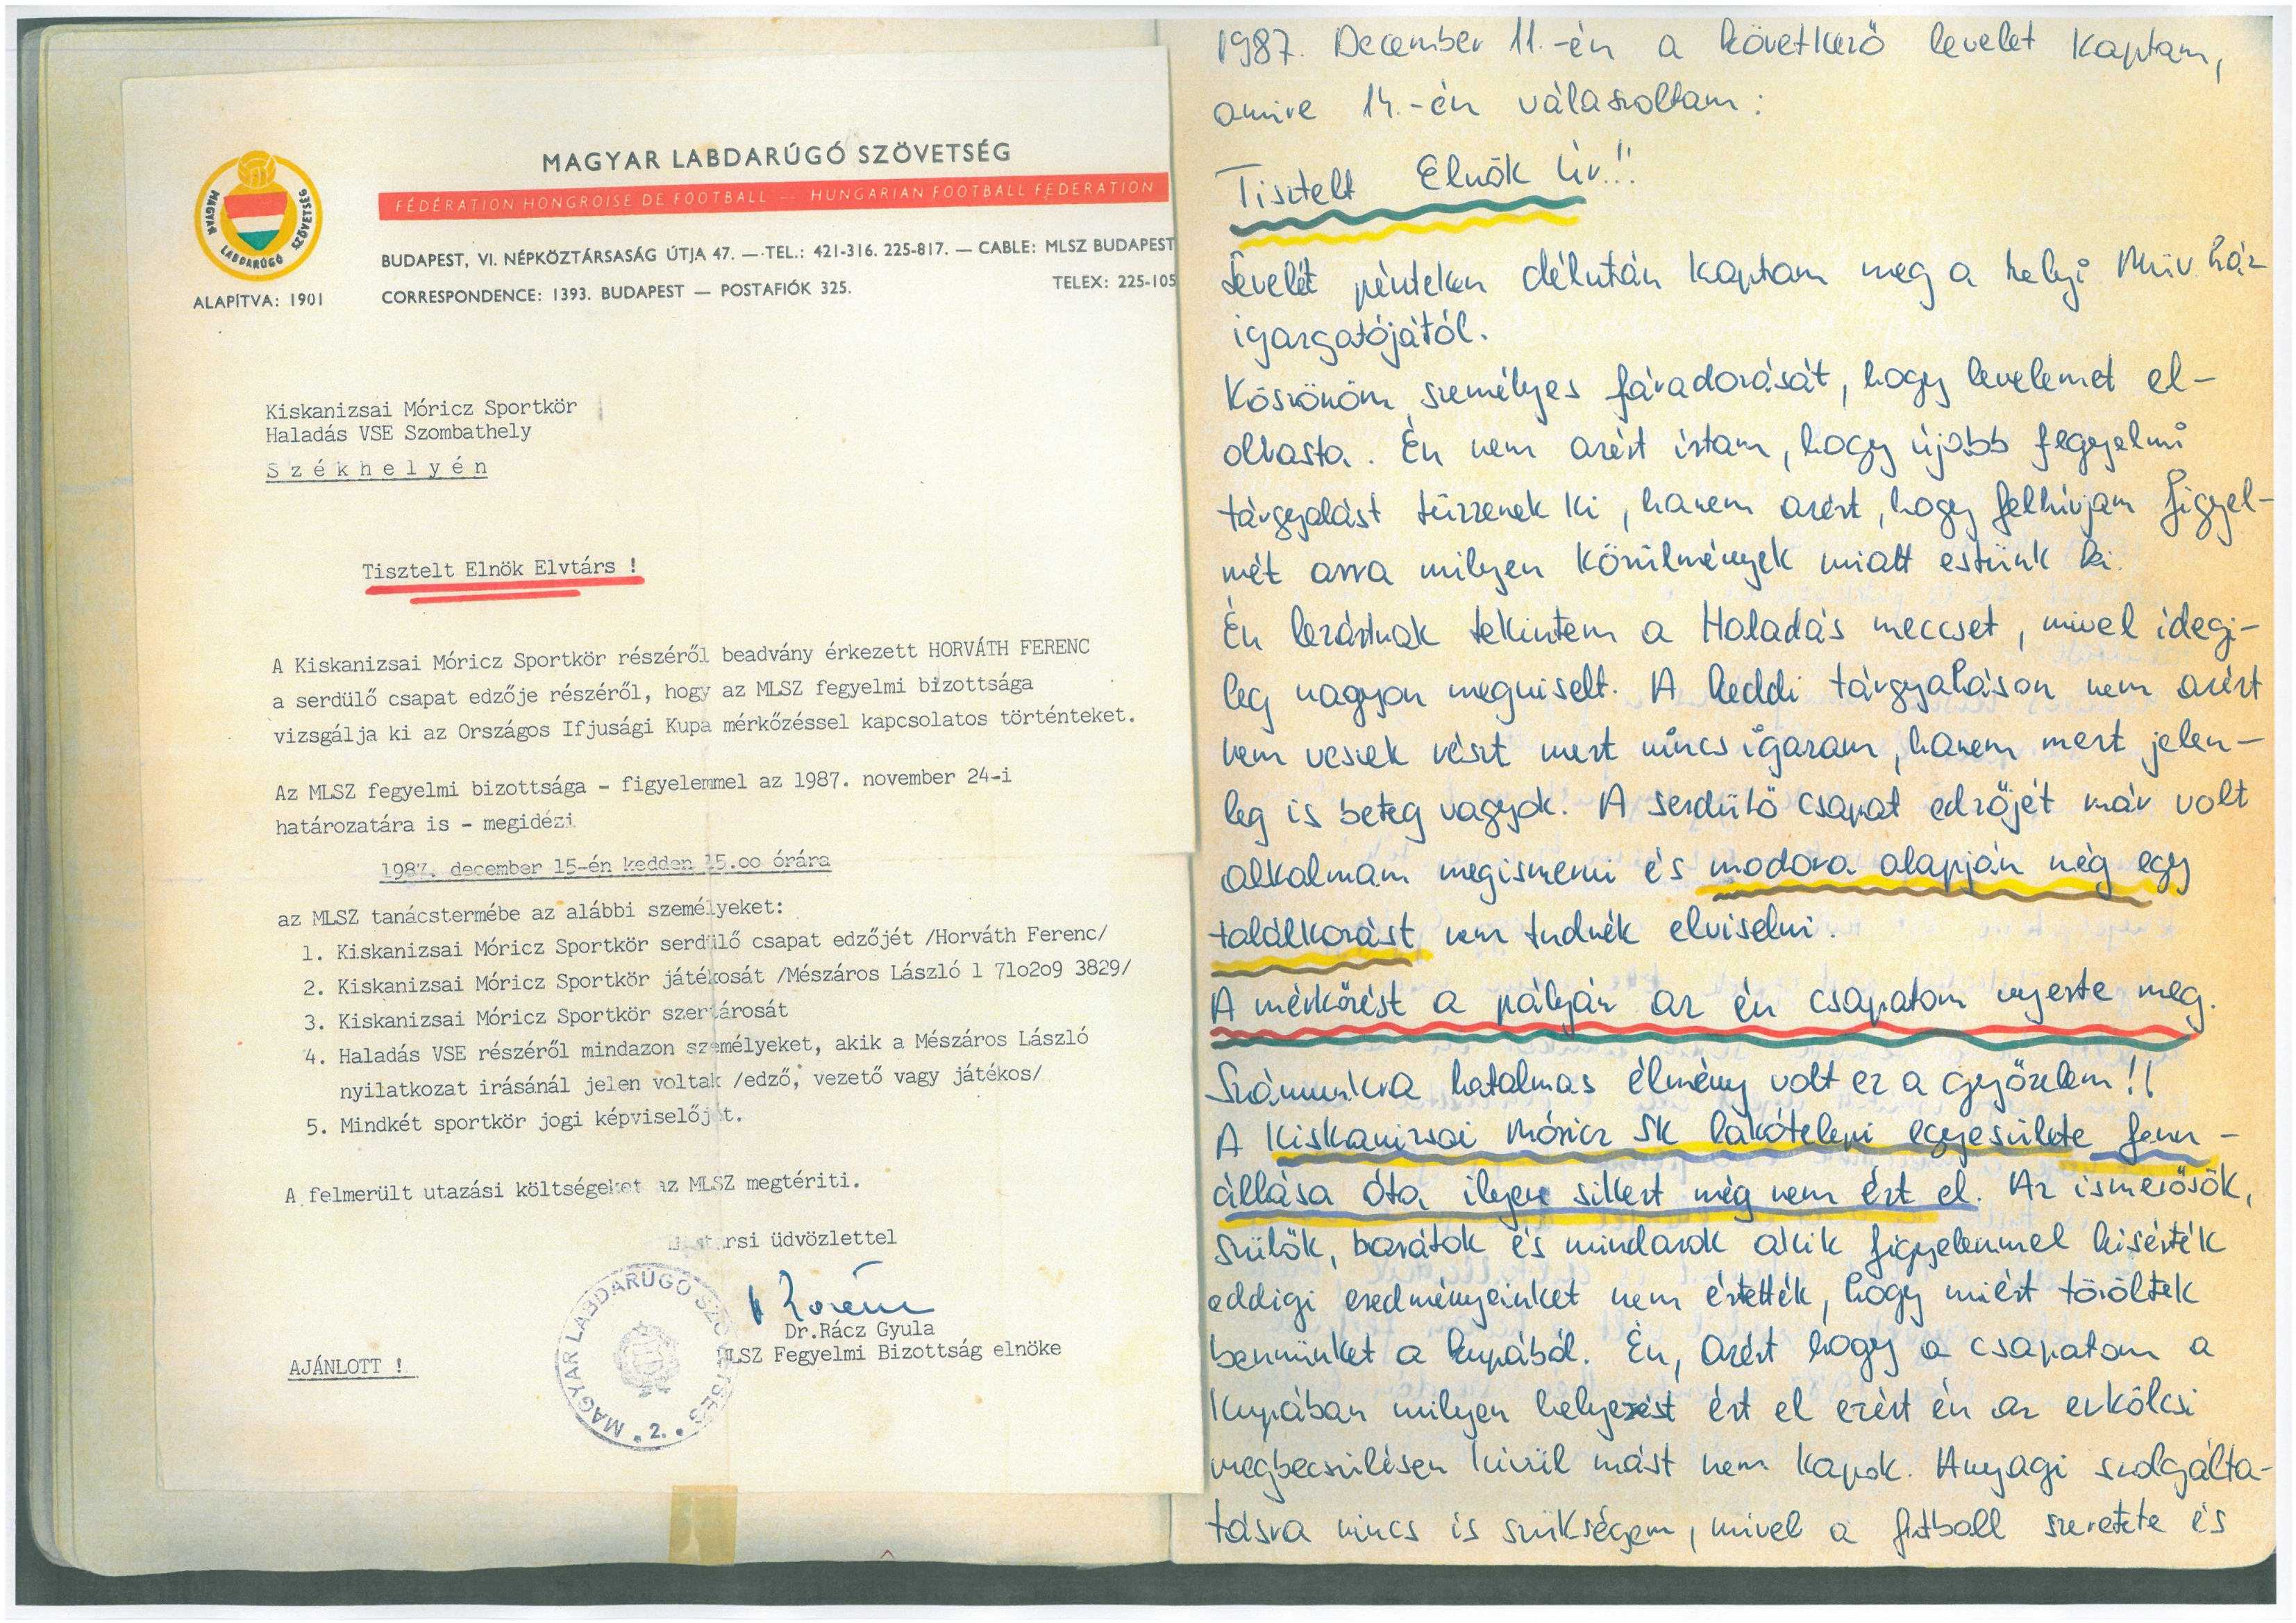 MAGYAR LABDARÚGÓ SZÖVETSÉG
FÉDÉRATION HONGROISE DE FOOTBALL — HUNGARIAN FOOTBALL FEDERATION
MAGYAR LABDARÚGÓ SZÖVETSÉG
ALAPÍTVA: 1901
BUDAPEST, VI. NÉPKÖZTÁRSASÁG ÚTJA 47. — TEL.: 421-316. 225-817. — CABLE: MLSZ BUDAPEST
CORRESPONDENCE: 1393. BUDAPEST — POSTAFIÓK 325. TELEX: 225-105
Kiskanizsai Móricz Sportkör
Haladás VSE Szombathely
Székhelyén
Tisztelt Elnök Elvtárs !
A Kiskanizsai Móricz Sportkör részéről beadvány érkezett HORVÁTH FERENC
a serdülő csapat edzője részéről, hogy az MLSZ fegyelmi bizottsága
vizsgálja ki az Országos Ifjusági Kupa mérkőzéssel kapcsolatos történteket.
Az MLSZ fegyelmi bizottsága – figyelemmel az 1987. november 24-i
határozatára is – megidézi
1987. december 15-én kedden 15.oo órára
az MLSZ tanácstermébe az alábbi személyeket:
1. Kiskanizsai Móricz Sportkör serdülő csapat edzőjét /Horváth Ferenc/
2. Kiskanizsai Móricz Sportkör játékosát /Mészáros László l 71o2o9 3829/
3. Kiskanizsai Móricz Sportkör szertárosát
4. Haladás VSE részéről mindazon személyeket, akik a Mészáros László
nyilatkozat irásánál jelen voltak /edző, vezető vagy játékos/
5. Mindkét sportkör jogi képviselőjét.
A felmerült utazási költségeket az MLSZ megtériti.
üdvözlettel
Dr.Rácz Gyula
MLSZ Fegyelmi Bizottság elnöke
AJÁNLOTT !
MAGYAR LABDARÚGÓ SZÖVETSÉG
2.
1987. December 11.-én a következő levelet kaptam,
amire 14.-én válaszoltam:
Tisztelt Elnök Úr!!
Levelét pénteken délután kaptam meg a helyi Műv ház
igazgatójától.
Köszönöm személyes fáradozását, hogy levelemet el-
olvasta. Én nem azért írtam, hogy újabb fegyelmi
tárgyalást tűzzenek ki, hanem azért, hogy felhívjam figyel-
mét arra milyen körülmények miatt estünk ki.
Én lezártnak tekintem a Haladás meccset, mivel idegi-
leg nagyon megviselt. A keddi tárgyaláson nem azért
nem veszek részt mert nincs igazam, hanem mert jelen-
leg is beteg vagyok. A serdülő csapat edzőjét már volt
alkalmam megismerni és modora alapján még egy
találkozást nem tudnék elviselni.
A mérkőzést a pályán az én csapatom nyerte meg.
Számunkra hatalmas élmény volt ez a győzelem!!
A Kiskanizsai Móricz SK lakótelepi egyesülete fenn-
állása óta ilyen sikert még nem ért el. Az ismerősök,
szülők, barátok és mindazok akik figyelemmel kisérték
eddigi eredményeinket nem értették, hogy miért töröltek
bennünket a kupából. Én, azért hogy a csapatom a
kupában milyen helyezést ért el ezért én az erkölcsi
megbecsülésen kívül mást nem kapok. Anyagi szolgálta-
tásra nincs is szükségem, mivel a futball szeretete és